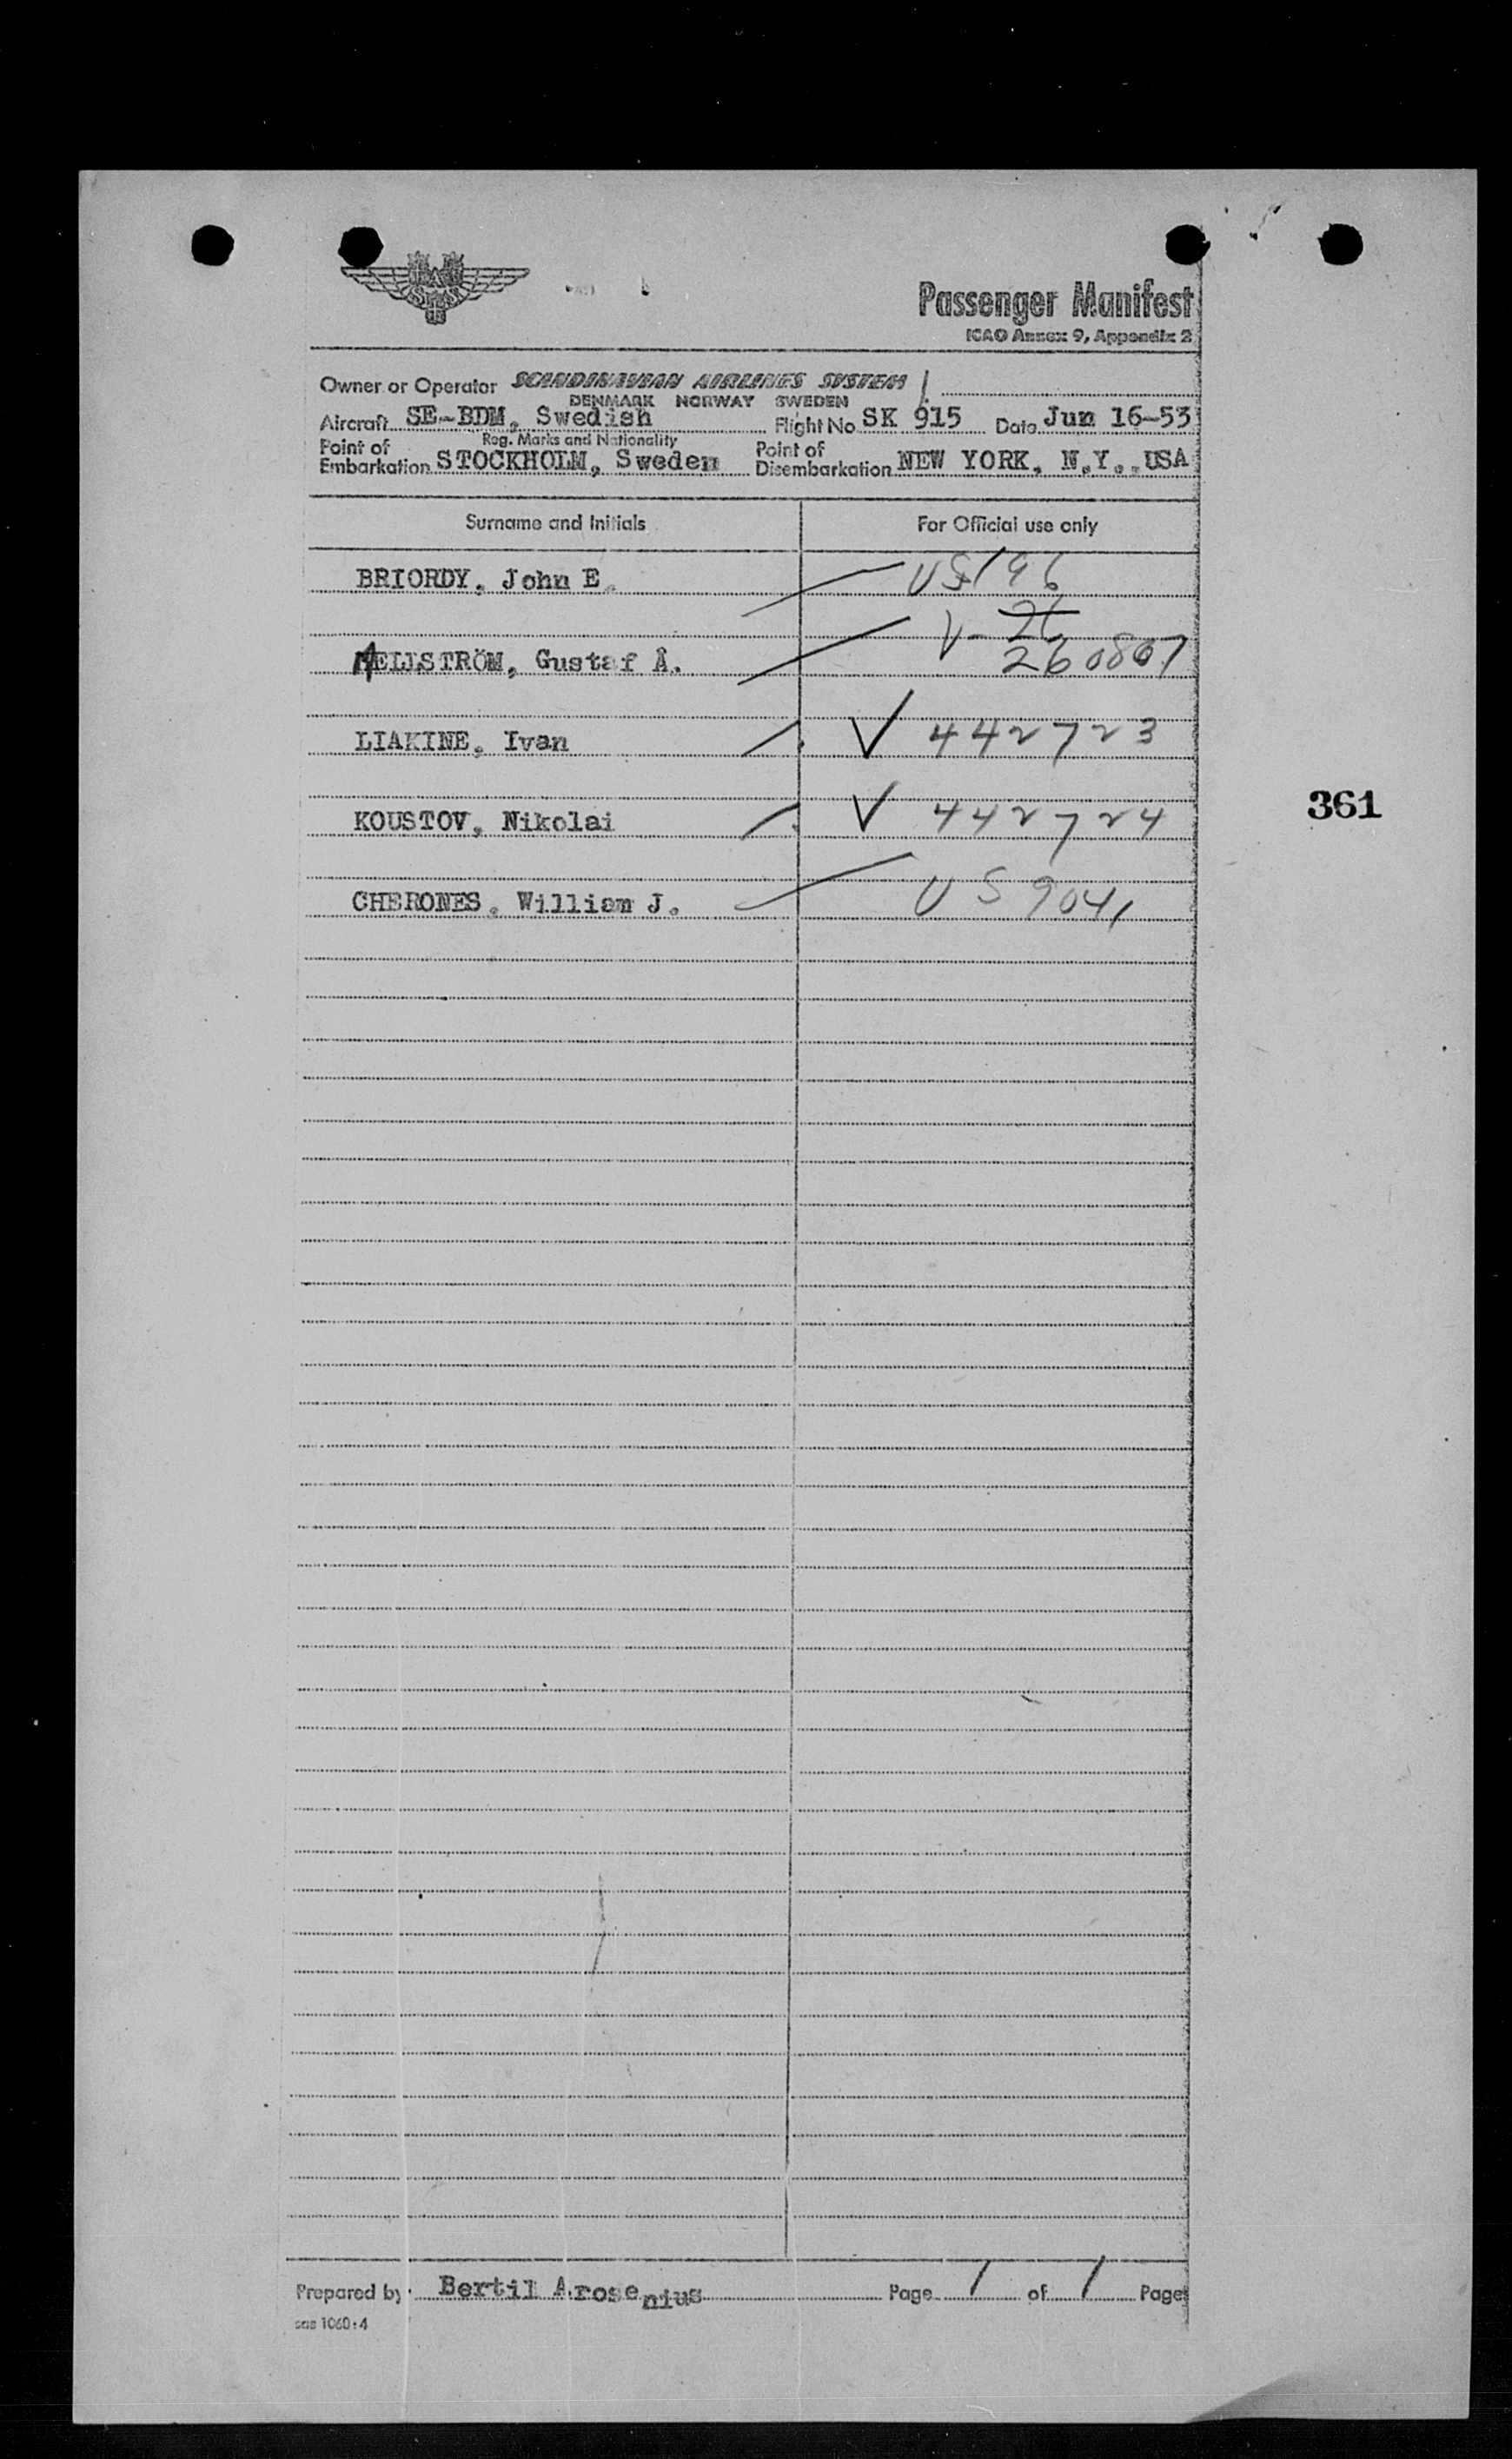 SAS
Passenger Manifest
ICAO Annex 9, Appendix 2
Owner or Operator SCANDINAVIAN AIRLINES SYSTEM
DENMARK NORWAY SWEDEN
Aircraft SE-BDM, Swedish Flight No SK 915 Date Jun 16-53
Reg. Marks and Nationality
Point of Embarkation STOCKHOLM, Sweden Point of Disembarkation NEW YORK, N.Y., USA
Surname and Initials For Official use only
BRIORDY, John E.
V-
ELLSTRÖM, Gustaf Å. 260807
LIAKINE, Ivan V 442723
KOUSTOV, Nikolai V 442724
CHERONES, William J. US 9041
361
Prepared by Bertil Arosenius Page 1 of 1 Page
sas 1060:4